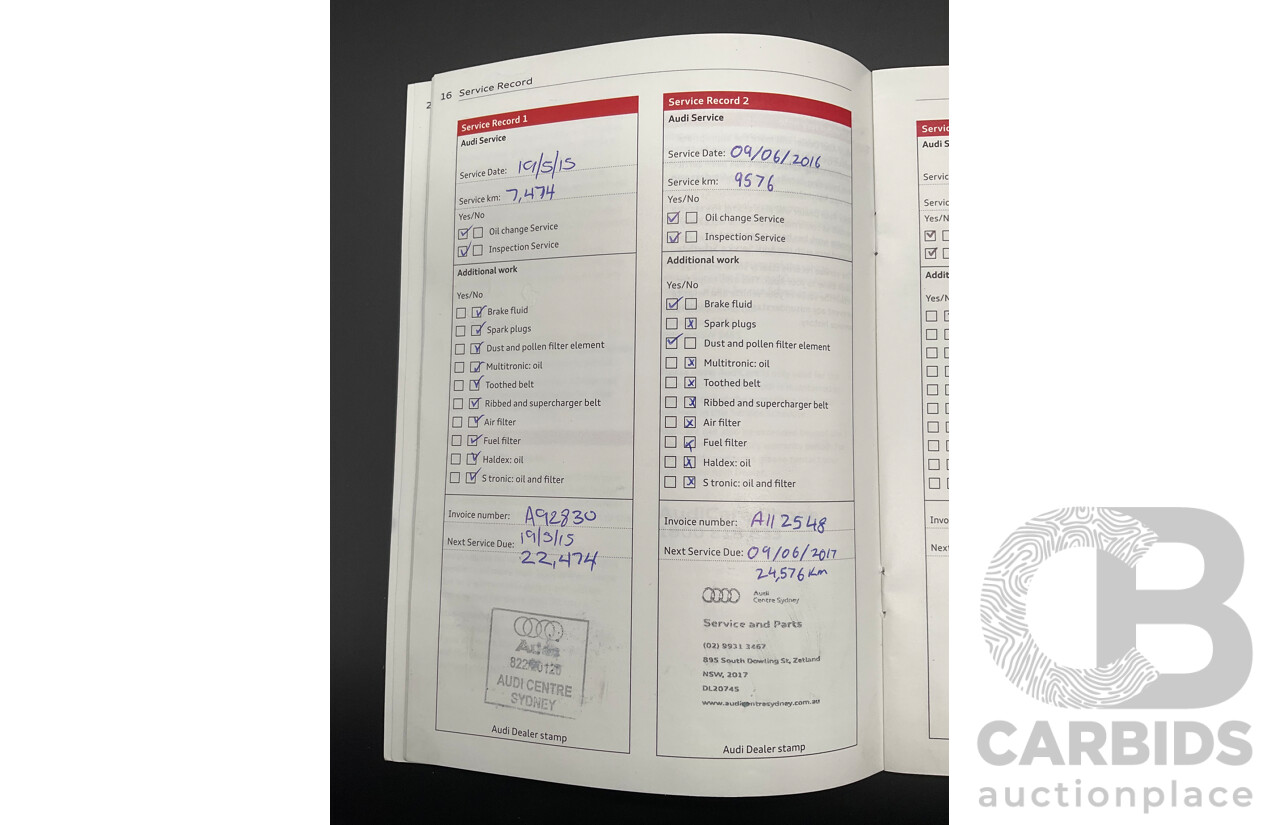 2
16 Service Record
Service Record 1
Audi Service
Service Date: 19/5/15
Service km: 7,474
Yes/No
Oil change Service
Inspection Service
Additional work
Yes/No
Brake fluid
Spark plugs
Dust and pollen filter element
Multitronic: oil
Toothed belt
Ribbed and supercharger belt
Air filter
Fuel filter
Haldex: oil
S tronic: oil and filter
Invoice number: A92830
Next Service Due: 19/5/15
22,474
AUDI CENTRE
SYDNEY
Audi Dealer stamp
Service Record 2
Audi Service
Service Date: 09/06/2016
Service km: 9576
Yes/No
Oil change Service
Inspection Service
Additional work
Yes/No
Brake fluid
Spark plugs
Dust and pollen filter element
Multitronic: oil
Toothed belt
Ribbed and supercharger belt
Air filter
Fuel filter
Haldex: oil
S tronic: oil and filter
Invoice number: A112548
Next Service Due: 09/06/2017
24,576 km
Audi
Centre Sydney
Service and Parts
(02) 9931 3467
895 South Dowling St, Zetland
NSW, 2017
DL20745
www.audicentresydney.com.au
Audi Dealer stamp
Servic
Audi S
Servic
Servic
Yes/N
Addit
Yes/N
Invo
Next
CB
CARBIDS
auctionplace